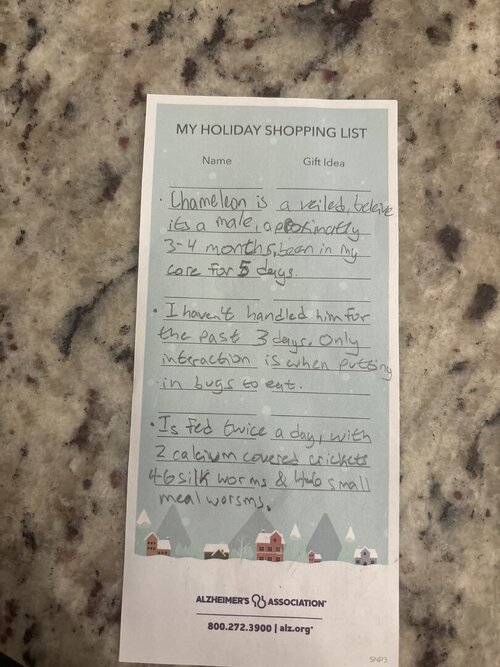 MY HOLIDAY SHOPPING LIST
Name Gift Idea
· Chameleon is a veiled, beleive
its a male, approximatly
3-4 months, been in my
care for 5 days.
• I haven't handled him for
the past 3 days. Only
interaction is when putting
in bugs to eat.
• Is fed twice a day, with
2 calcium covered crickets
4-6 silk worms & 4-6 small
meal worsms.
ALZHEIMER'S ASSOCIATION®
800.272.3900 | alz.org®
SNP3